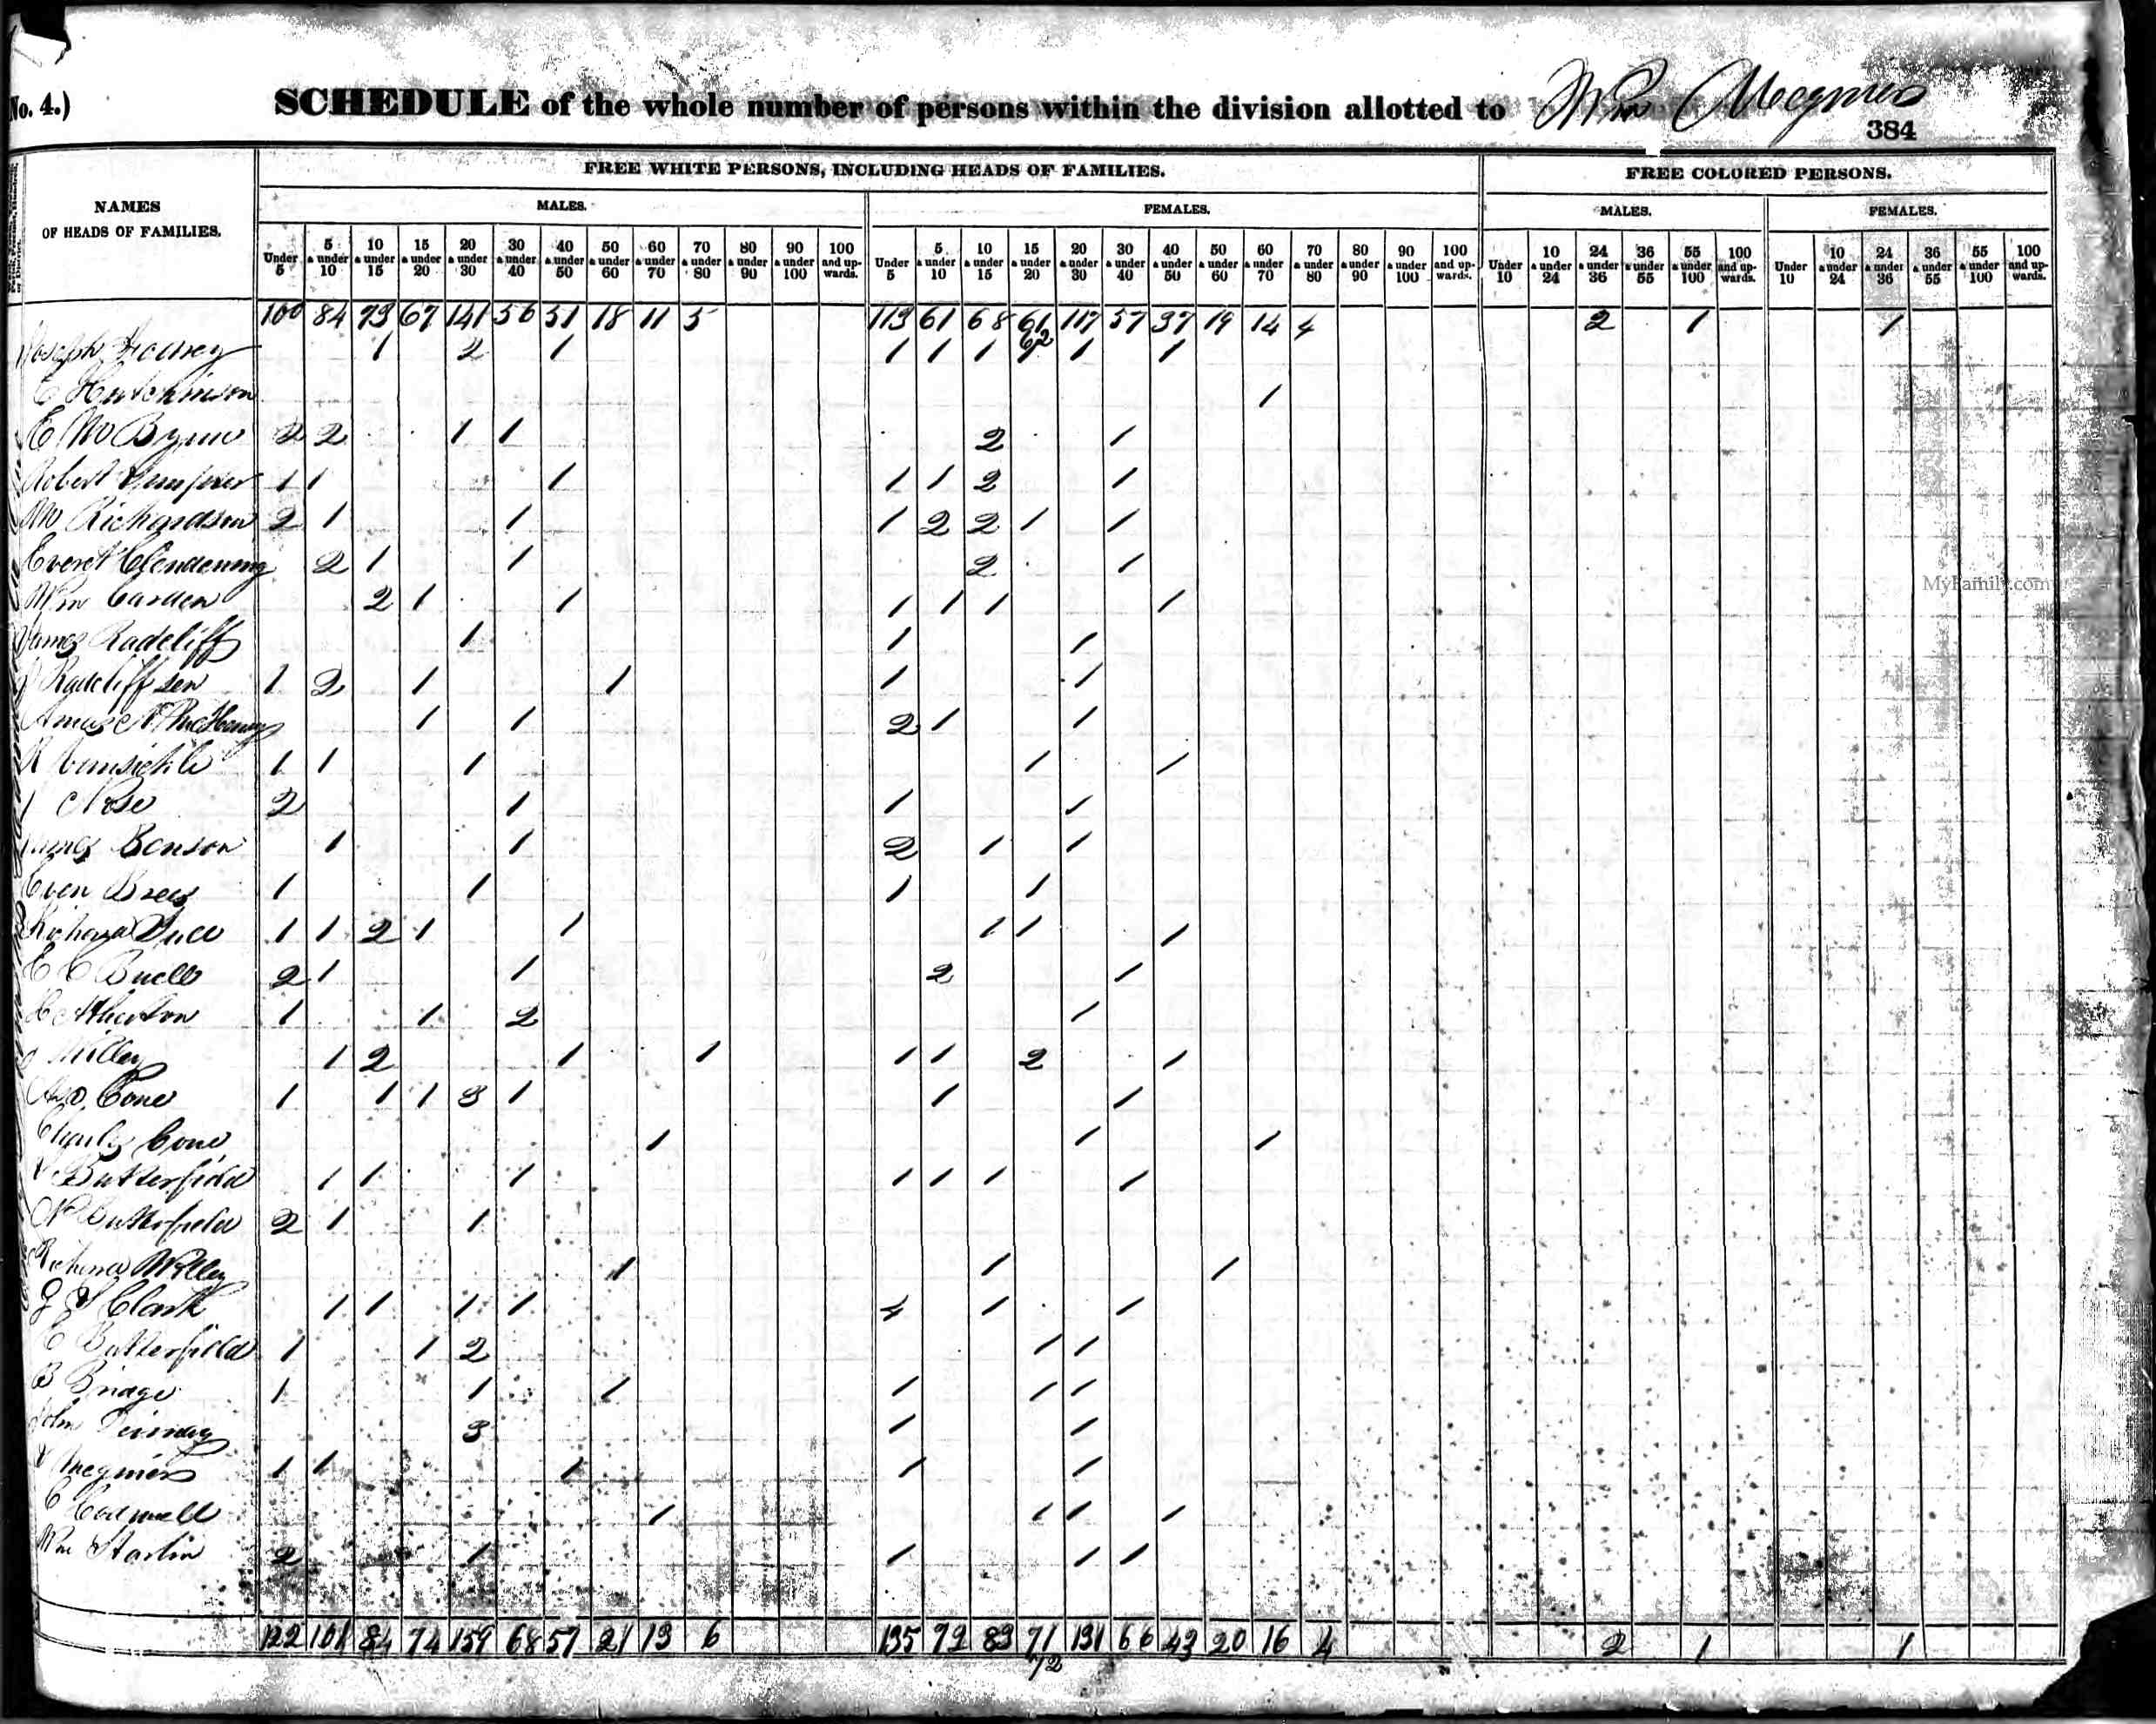 No. 4.)
SCHEDULE of the whole number of persons within the division allotted to Wm
384
FREE WHITE PERSONS, INCLUDING HEADS OF FAMILIES. FREE COLORED PERSONS.
NAMES OF HEADS OF FAMILIES.
MALES. FEMALES. MALES. FEMALES.
Under 5 5 & under 10 10 & under 15 15 & under 20 20 & under 30 30 & under 40 40 & under 50 50 & under 60 60 & under 70 70 & under 80 80 & under 90 90 & under 100 100 and up-wards. Under 5 5 & under 10 10 & under 15 15 & under 20 20 & under 30 30 & under 40 40 & under 50 50 & under 60 60 & under 70 70 & under 80 80 & under 90 90 & under 100 100 and up-wards. Under 10 10 & under 24 24 & under 36 36 & under 55 55 & under 100 100 and up-wards. Under 10 10 & under 24 24 & under 36 36 & under 55 55 & under 100 100 and up-wards.
100 84 73 67 141 56 51 18 11 5 113 61 68 61 62 117 57 37 19 14 4 2 1 1
Joseph 1 2 1 1 1 1 1 1 1
E Hutchinson 1
E 2 2 1 1 2 1
Robert 1 1 1 1 1 2 1
Wm Richardson 2 1 1 1 2 2 1 1
Everet Clendenning 2 1 1 2 1
Wm Carden 2 1 1 1 1 1 1
James Radcliff 1 1 1
Radcliff sen 1 2 1 1 1 1
Amos 1 1 2 1 1
1 1 1 1 1
2 1 1 1
James Benson 1 1 2 1 1
Even 1 1 1 1
Richard 1 1 2 1 1 1 1 1
E C Buell 2 1 1 2 1
Atherton 1 1 2 1
1 2 1 1 1 1 2 1
Cone 1 1 1 3 1 1 1
Charles Cone 1 1 1
Butterfield 1 1 1 1 1 1 1
N Butterfield 2 1 1
Richard Willey 1 1 1
Clark 1 1 1 1 4 1 1
E Butterfield 1 1 2 1 1
B Bridge 1 1 1 1 1 1
John 3 1 1
1 1 1 1 1
C 1 1 1 1
Wm 2 1 1 1 1
122 101 84 74 159 68 57 21 13 6 135 73 83 71 72 131 66 43 20 16 4 2 1 1
MyFamily.com